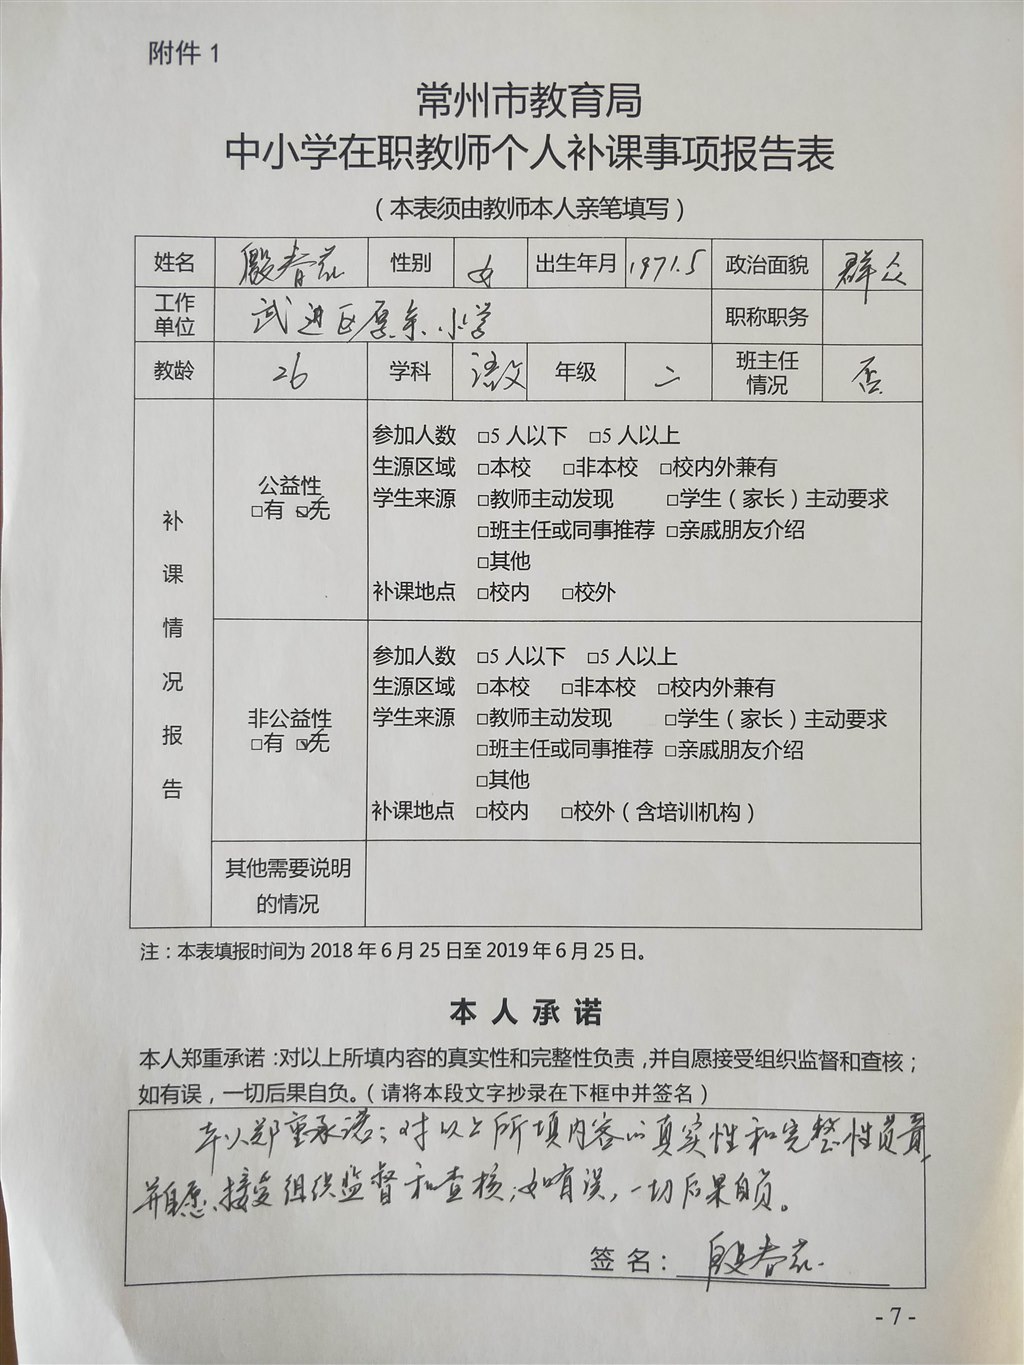 附件 1
常州市教育局
中小学在职教师个人补课事项报告表
（本表须由教师本人亲笔填写）
姓名 殷春花 性别 女 出生年月 1971.5 政治面貌 群众
工作单位 武进区厚余小学 职称职务
教龄 26 学科 语文 年级 二 班主任情况 否
补课情况报告
公益性
□有 ☑无
参加人数 □5 人以下 □5 人以上
生源区域 □本校 □非本校 □校内外兼有
学生来源 □教师主动发现 □学生（家长）主动要求
□班主任或同事推荐 □亲戚朋友介绍
□其他
补课地点 □校内 □校外
非公益性
□有 ☑无
参加人数 □5 人以下 □5 人以上
生源区域 □本校 □非本校 □校内外兼有
学生来源 □教师主动发现 □学生（家长）主动要求
□班主任或同事推荐 □亲戚朋友介绍
□其他
补课地点 □校内 □校外（含培训机构）
其他需要说明
的情况
注：本表填报时间为 2018 年 6 月 25 日至 2019 年 6 月 25 日。
本人承诺
本人郑重承诺：对以上所填内容的真实性和完整性负责，并自愿接受组织监督和查核；
如有误，一切后果自负。（请将本段文字抄录在下框中并签名）
本人郑重承诺：对以上所填内容的真实性和完整性负责，
并自愿接受组织监督和查核；如有误，一切后果自负。
签名：殷春花
- 7 -